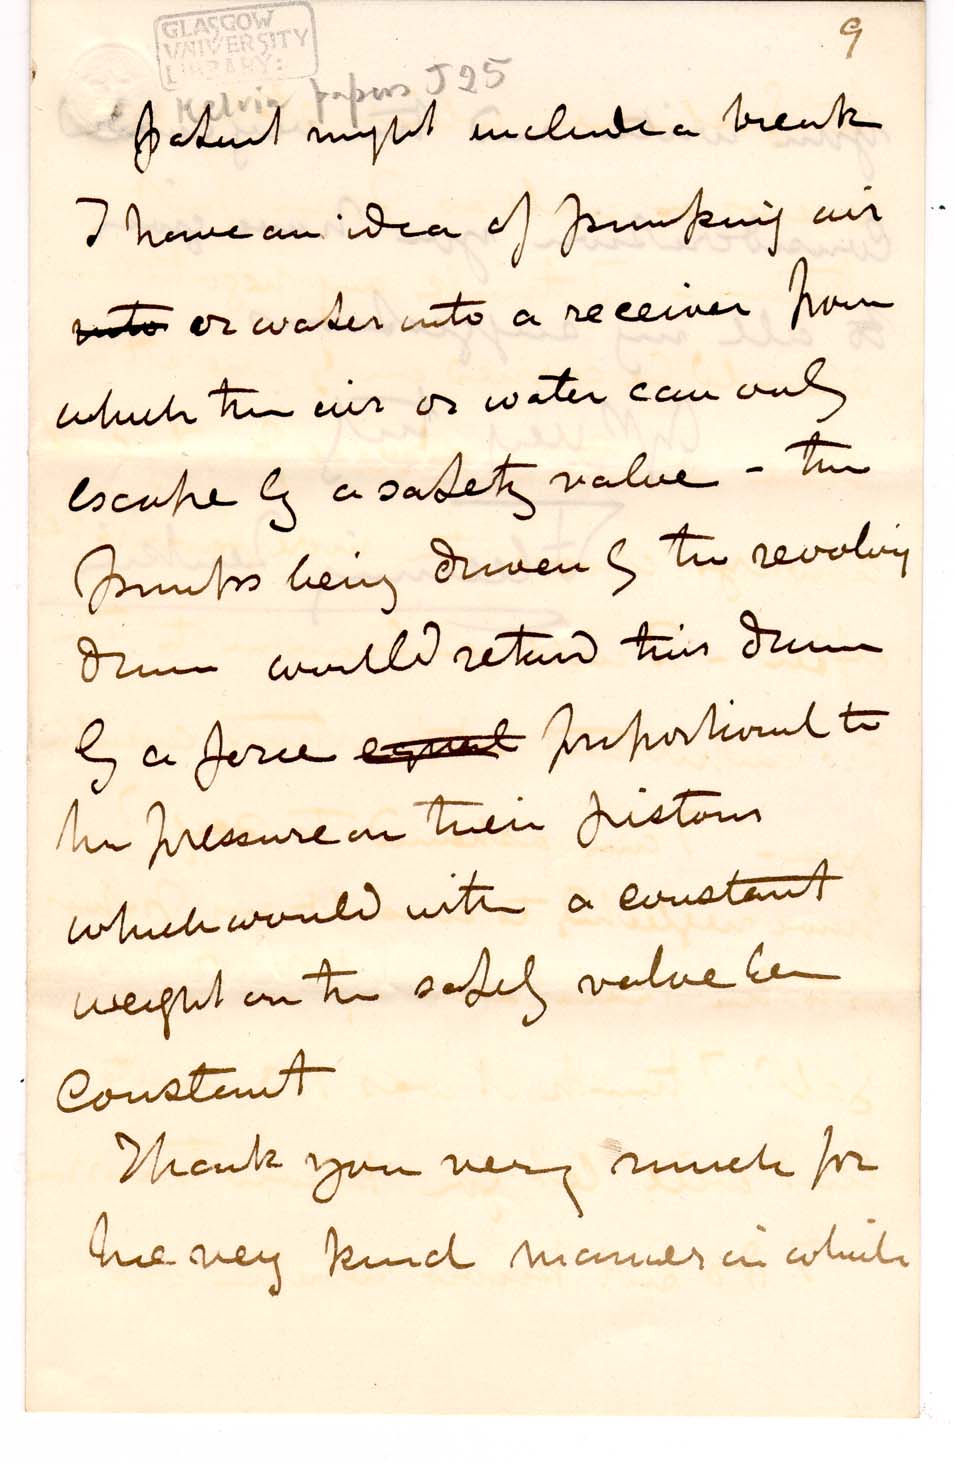 9
GLASGOW
UNIVERSITY
LIBRARY:
Kelvin papers J25
patent might include a break
I have an idea of pumping air
into or water into a receiver from
which the air or water can only
escape by a safety valve - the
pumps being driven by the revolving
drum would retard this drum
by a force equal proportional to
the pressure on their pistons
which would with a constant
weight on the safety valve be
constant
Thank you very much for
the very kind manner in which